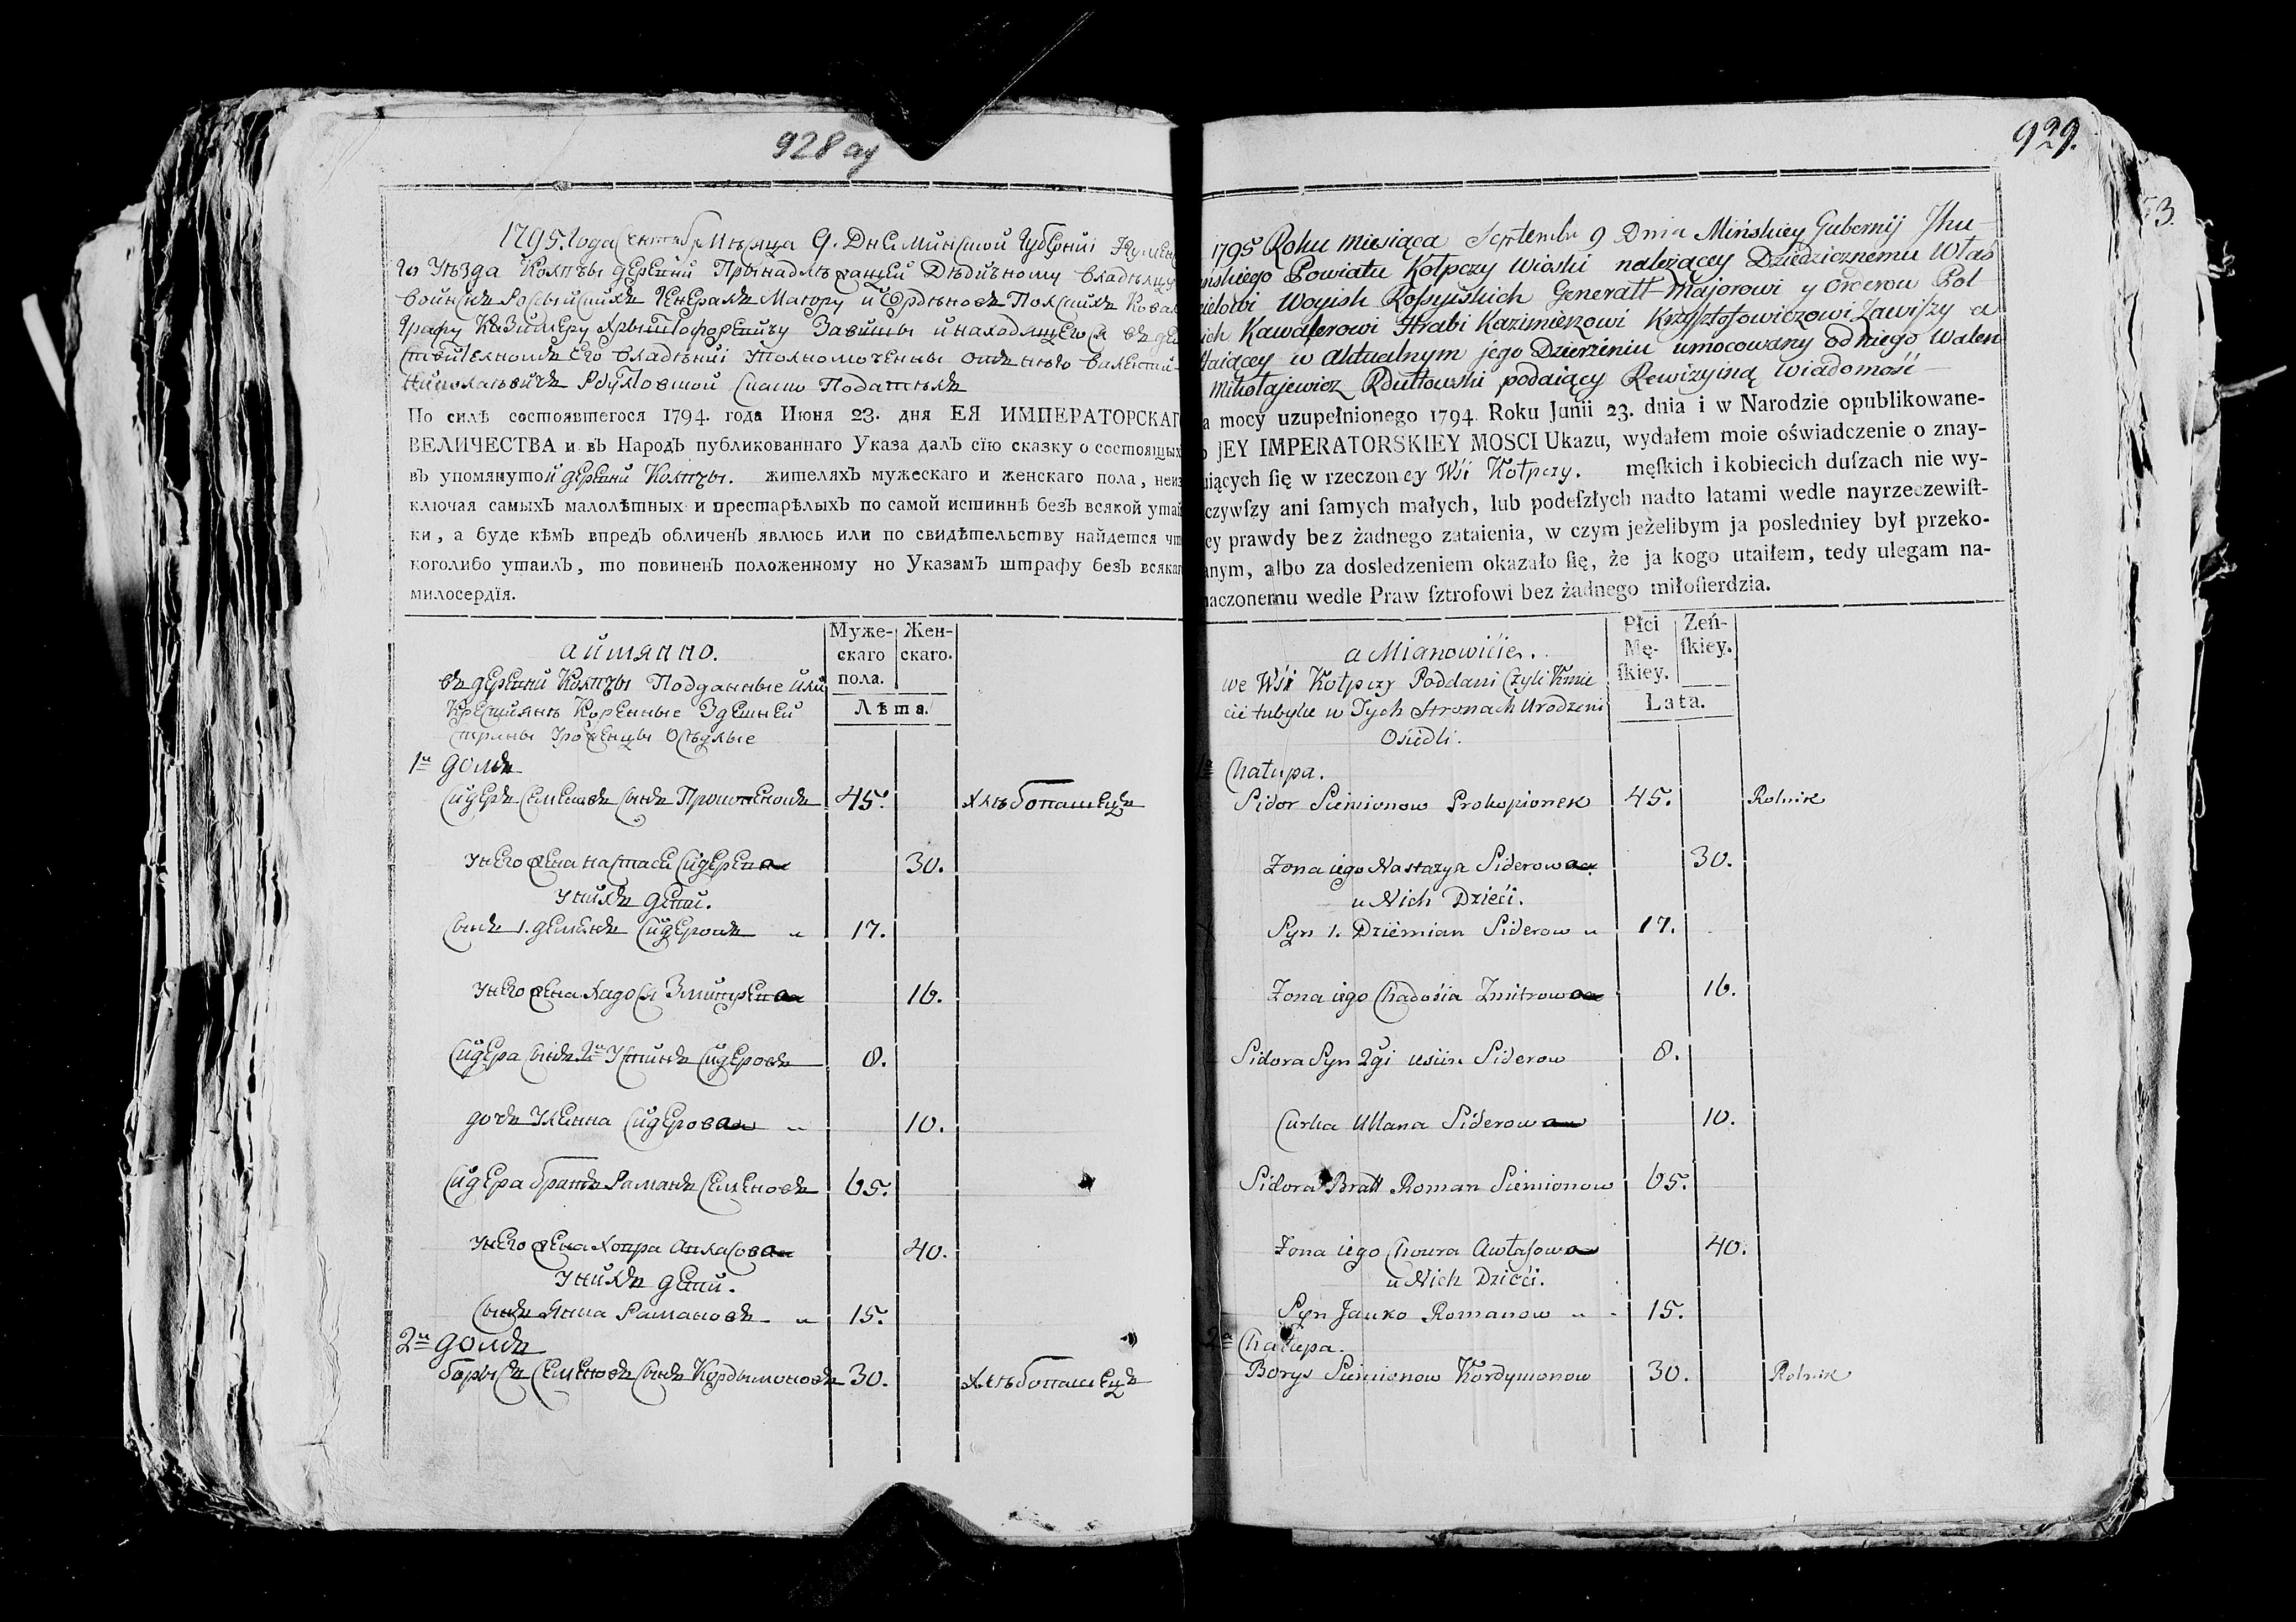 928 об
1795. Года Сентябр Месяца 9. Дне Минской Губернiи Ігумен
го Уѣзда Колпчы деревни Принадлежащей Дѣдичному владѣлцу
войскъ Россыйскихъ Генералъ Маіору и Ордѣновъ Полскихъ Ковал
Графу Казимеру Хрыштофоровичу Завишы и находящегося въ дей
ствителномъ Его владѣнiи Уполномоченны отъ нѣго Валентый
Николаевичъ Рдултовской симъ
По силѣ состоявшегося 1794. года Июня 23. дня ЕЯ ИМПЕРАТОРСКАГ
ВЕЛИЧЕСТВА и въ Народъ публикованнаго Указа далъ сїю сказку о состоящых
въ упомянутой деревни Колпчы. жителяхъ мужескаго и женскаго пола, неиз
ключая самыхъ малолѣтныхъ и престарѣлыхъ по самой истиннѣ безъ всякой утай
ки, а буде кѣмъ впредъ обличенъ явлюсь или по свидѣтельству найдется чт
коголибо утаилъ, то повиненъ положенному но Указамъ штрафу безъ всякаг
милосердїя.
аимянно.
Муже- Жен-
скаго скаго.
пола.
Лѣта.
въ деревни Колпчы Подданные или
Крестиянъ Коренные Здешней
страны Урожденцы Осѣдлые
1й домъ
Сидеръ Семеновъ сынъ Прокопенокъ 45. хлѣбопашецъ
У него жена Настася Сидерова 30.
У нихъ дети.
Сынъ 1. Деменъ Сидеровъ „ 17.
У него жена Хадося Змитрова 16.
Сидера сынъ 2й Устинъ Сидеровъ 8.
дочъ Улянна Сидерова „ 10.
Сидера братъ Раманъ Семеновъ 65.
У него жена Ховра Авласова 40.
У нихъ дети.
Сынъ Янка Рамановъ „ 15.
2й домъ
Борысъ Семеновъ сынъ Кордымоновъ 30. хлѣбопашецъ
929.
53.
1795 Roku miesiąca Septembr 9 Dnia Mińskiey Gubernij Jhu
mńskiego Powiatu Kołpczy Wioski należącey Dziedzicznemu Włas
cielowi Woyisk Rossyiskich Generall-Majorowi y Orderow Pol
skich Kawalerowi Hrabi Kazimierzowi Krzysztofowiczowi Zawiszy a
staiącey w aktualnym jego Dzierżeniu umocowany od niego Walen
Mikołajewicz Rdułtowski podaiący Rewizyiną wiadomość
a mocy uzupełnionego 1794 Roku Junii 23. dnia i w Narodzie opublikowane-
o JEY IMPERATORSKIEY MOSCI Ukazu, wydałem moie oświadczenie o znay-
uiących ſię w rzeczoney Wśi Kołpczy. męſkich i kobiecich duſzach nie wy-
czywſzy ani ſamych małych, lub podeſzłych nadto latami wedle nayrzeczewiſt-
ey prawdy bez żadnego zataienia, w czym jeżelibym ja posledniey był przeko-
anym, albo za dosledzeniem okazało ſię, że ja kogo utaiłem, tedy ulegam na-
naczonemu wedle Praw ſztrofowi bez żadnego miłoſierdzia.
a Mianowićie.
Płci Zeń-
Mę- ſkiey.
ſkiey.
Lata.
we Wśi Kołpczy Poddani Czyli Kmie
cie tubylce w Tych Stronach Urodzeni
Osiedli.
1a Chałupa.
Sidor Siemionow Prokopionek 45. Rolnik
Zona iego Nastazya Siderowa 30.
u Nich Dzieći.
Syn 1. Dziemian Siderow „ 17.
Zona iego Chadośia Zmitrowa 16.
Sidora Syn 2gi Usiin Siderow 8.
Curka Ullana Siderowa 10.
Sidora Bratt Roman Siemionow 65.
Zona iego Chowra Awłasowa 40.
u Nich Dzieći.
Syn Janko Romanow „ 15.
2a Chałupa.
Borys Siemionow Kordymonow 30. Rolnik